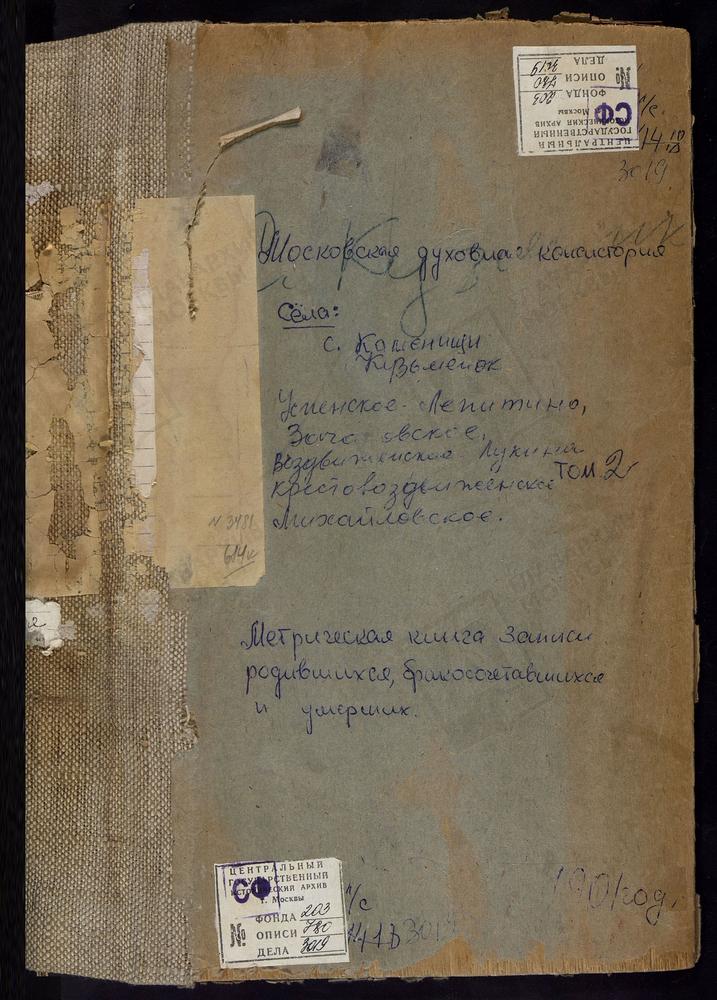 ЦЕНТРАЛЬНЫЙ
ГОСУДАРСТВЕННЫЙ
ИСТОРИЧЕСКИЙ АРХИВ
г. Москвы
СФ
ФОНДА 203
№ ОПИСИ 780
ДЕЛА 3019
п/с.
3019
Московская духовная консистория
Сёла:
с. Каменищи
Кузьменок
Успенское-Лепитино,
Воздвиженское Лукино
том 2
Крестовоздвиженское
Михайловское.
N 3481
614
Метрическая книга записи
родившихся, бракосочетавшихся
и умерших.
1901 год.
ЦЕНТРАЛЬНЫЙ
ГОСУДАРСТВЕННЫЙ
ИСТОРИЧЕСКИЙ АРХИВ
г. Москвы
СФ
ФОНДА 203
№ ОПИСИ 780
ДЕЛА 3019
п/с
3019